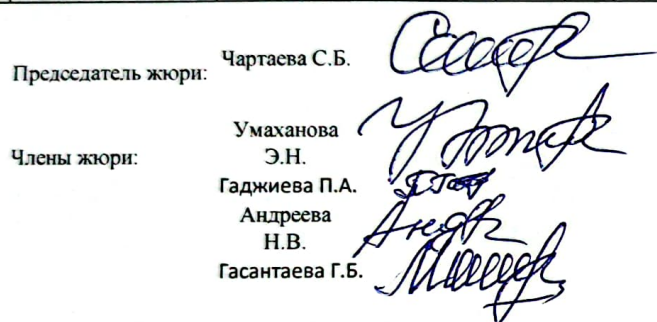 Председатель жюри: Чартаева С.Б.
Члены жюри: Умаханова
Э.Н.
Гаджиева П.А.
Андреева
Н.В.
Гасантаева Г.Б.